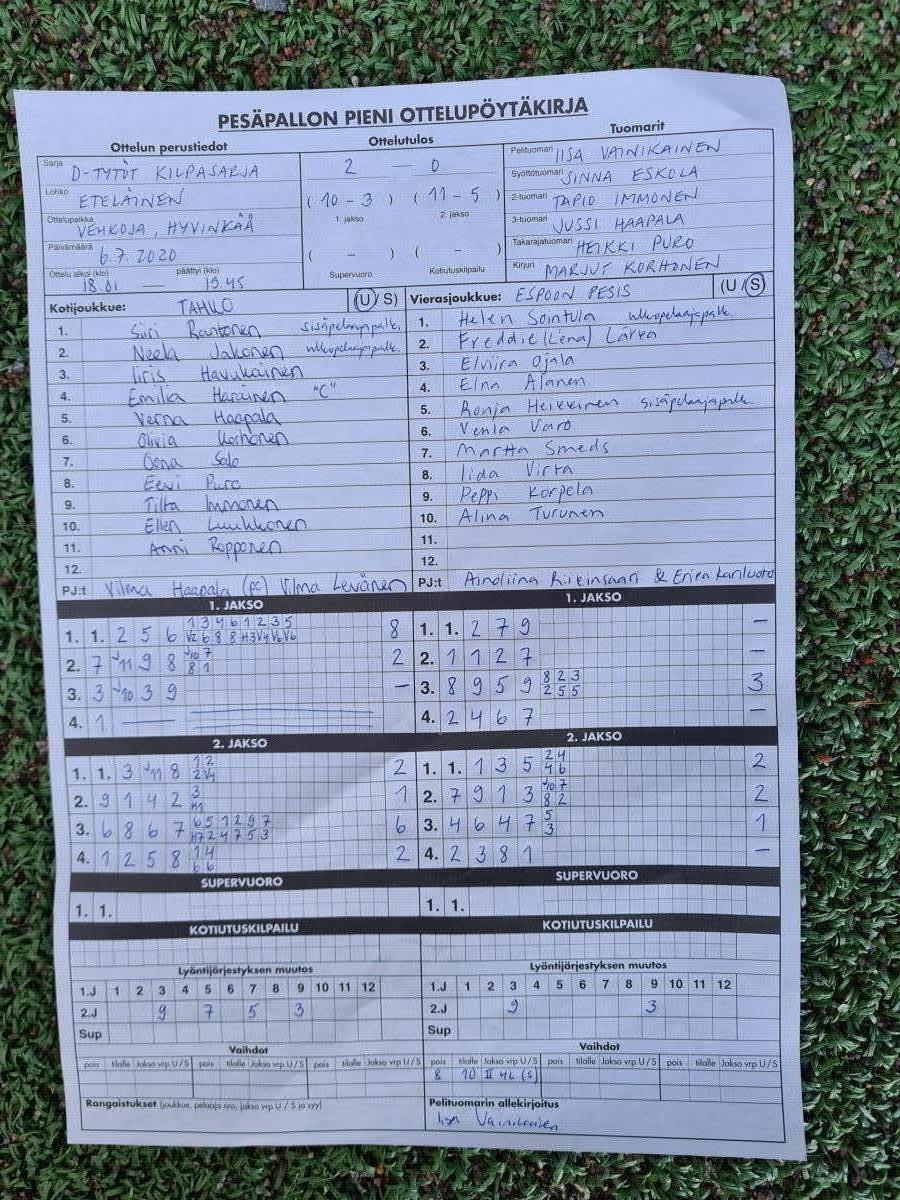 PESÄPALLON PIENI OTTELUPÖYTÄKIRJA
Ottelun perustiedot
Sarja D-TYTÖT KILPASARJA
Lohko ETELÄINEN
Ottelupaikka VEHKOJA, HYVINKÄÄ
Päivämäärä 6.7.2020
Ottelu alkoi (klo) 18.01 — päättyi (klo) 19.45
Ottelutulos
2 — 0
(10 - 3) (11 - 5)
1. jakso 2. jakso
( - ) ( - )
Supervuoro Kotiutuskilpailu
Tuomarit
Pelituomari IISA VAINIKAINEN
Syöttötuomari SINNA ESKOLA
2-tuomari TAPIO IMMONEN
3-tuomari JUSSI HAAPALA
Takarajatuomari HEIKKI PURO
Kirjuri MARJUT KORHONEN
Kotijoukkue: TAHKO (U/S)
1. Siiri Rantonen sisäpelaajapalk.
2. Neela Jakonen ulkopelaajapalk.
3. Iiris Havukainen
4. Emilia Haruinen "C"
5. Verna Haapala
6. Olivia Korhonen
7. Oona Salo
8. Eevi Puro
9. Tilta Immonen
10. Ellen Luukkonen
11. Anni Ropponen
12.
PJ:t Vilma Haapala (pc) Vilma Levänen
Vierasjoukkue: ESPOON PESIS (U/S)
1. Helen Sointula ulkopelaajapalk.
2. Freddie (Lena) Lärka
3. Elviira Ojala
4. Elna Alanen
5. Ronja Heikkinen sisäpelaajapalk.
6. Venla Varo
7. Martta Smeds
8. Iida Virta
9. Peppi Korpela
10. Alina Turunen
11.
12.
PJ:t Ainoliina Riikinsaari & Erica Kariluoto
1. JAKSO
1. 1. 2 5 6 1 3 4 6 1 2 3 5
V2 6 8 8 H3 V4 V6 V6 8
2. 7 J11 9 8 J10 7
8 1 2
3. 3 J10 3 9 —
4. 1
2. JAKSO
1. 1. 3 J11 8 1 2
2 V4 2
2. 9 1 4 2 3
H1 1
3. 6 8 6 7 6 5 1 2 9 7
H7 2 4 7 5 3 6
4. 1 2 5 8 1 4
6 6 2
SUPERVUORO
1. 1.
KOTIUTUSKILPAILU
Lyöntijärjestyksen muutos
1.J 1 2 3 4 5 6 7 8 9 10 11 12
2.J 9 7 5 3
Sup
Vaihdot
pois tilalle Jakso vrp U/S pois tilalle Jakso vrp U/S pois tilalle Jakso vrp U/S
Rangaistukset (joukkue, pelaaja nro, jakso vrp U / S ja syy)
1. JAKSO
1. 1. 2 7 9 —
2. 1 1 2 7 —
3. 8 9 5 9 8 2 3
2 5 5 3
4. 2 4 6 7 —
2. JAKSO
1. 1. 1 3 5 2 4
4 6 2
2. 7 9 1 3 J10 7
8 2 2
3. 4 6 4 7 5
3 1
4. 2 3 8 1 —
SUPERVUORO
1. 1.
KOTIUTUSKILPAILU
Lyöntijärjestyksen muutos
1.J 1 2 3 4 5 6 7 8 9 10 11 12
2.J 9 3
Sup
Vaihdot
pois tilalle Jakso vrp U/S pois tilalle Jakso vrp U/S pois tilalle Jakso vrp U/S
8 10 II 4L (S)
Pelituomarin allekirjoitus
Iisa Vainikainen